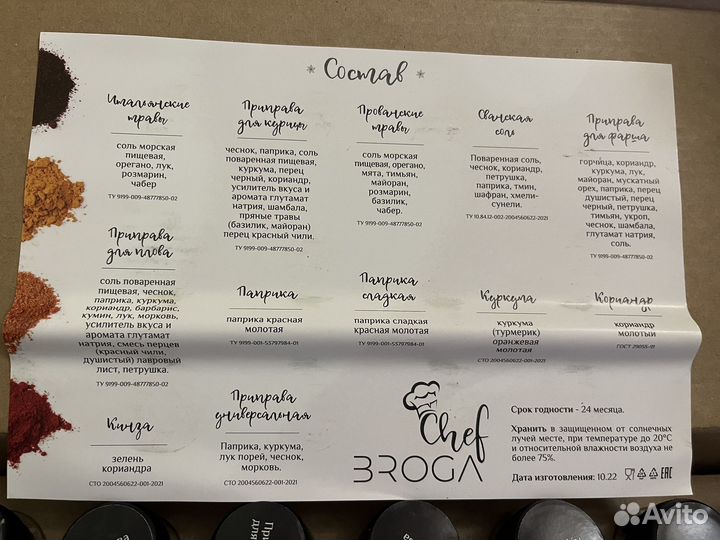 * Состав *
Итальянские
травы
соль морская
пищевая,
орегано, лук,
розмарин,
чабер
ТУ 9199-009-48777850-02
Приправа
для курицы
чеснок, паприка, соль
поваренная пищевая,
куркума, перец
черный, кориандр,
усилитель вкуса и
аромата глутамат
натрия, шамбала,
пряные травы
(базилик, майоран)
перец красный чили.
ТУ 9199-009-48777850-02
Прованские
травы
соль морская
пищевая, орегано,
мята, тимьян,
майоран,
розмарин,
базилик,
чабер.
ТУ 9199-009-48777850-02
Сванская
соль
Поваренная соль,
чеснок, кориандр,
петрушка,
паприка, тмин,
шафран, хмели-
сунели.
ТУ 10.84.12-002-2004560622-2021
Приправа
для фарша
горчица, кориандр,
куркума, лук,
майоран, мускатный
орех, паприка, перец
душистый, перец
черный, петрушка,
тимьян, укроп,
чеснок, шамбала,
глутамат натрия,
соль.
ТУ 9199-009-48777850-02
Приправа
для плова
соль поваренная
пищевая, чеснок,
паприка, куркума,
кориандр, барбарис,
кумин, лук, морковь,
усилитель вкуса и
аромата глутамат
натрия, смесь перцев
(красный чили,
душистый) лавровый
лист, петрушка.
ТУ 9199-009-48777850-02
Паприка
паприка красная
молотая
ТУ 9199-001-53797984-01
Паприка
сладкая
паприка сладкая
красная молотая
ТУ 9199-001-53797984-01
Куркума
куркума
(турмерик)
оранжевая
молотая
СТО 2004560622-001-2021
Кориандр
кориандр
молотый
ГОСТ 29055-91
Кинза
зелень
кориандра
СТО 2004560622-001-2021
Приправа
универсальная
Паприка, куркума,
лук порей, чеснок,
морковь.
СТО 2004560622-002-2021
Chef
BROGA
Срок годности - 24 месяца.
Хранить в защищенном от солнечных
лучей месте, при температуре до 20°C
и относительной влажности воздуха не
более 75%.
Дата изготовления: 10.22
EAC
Avito